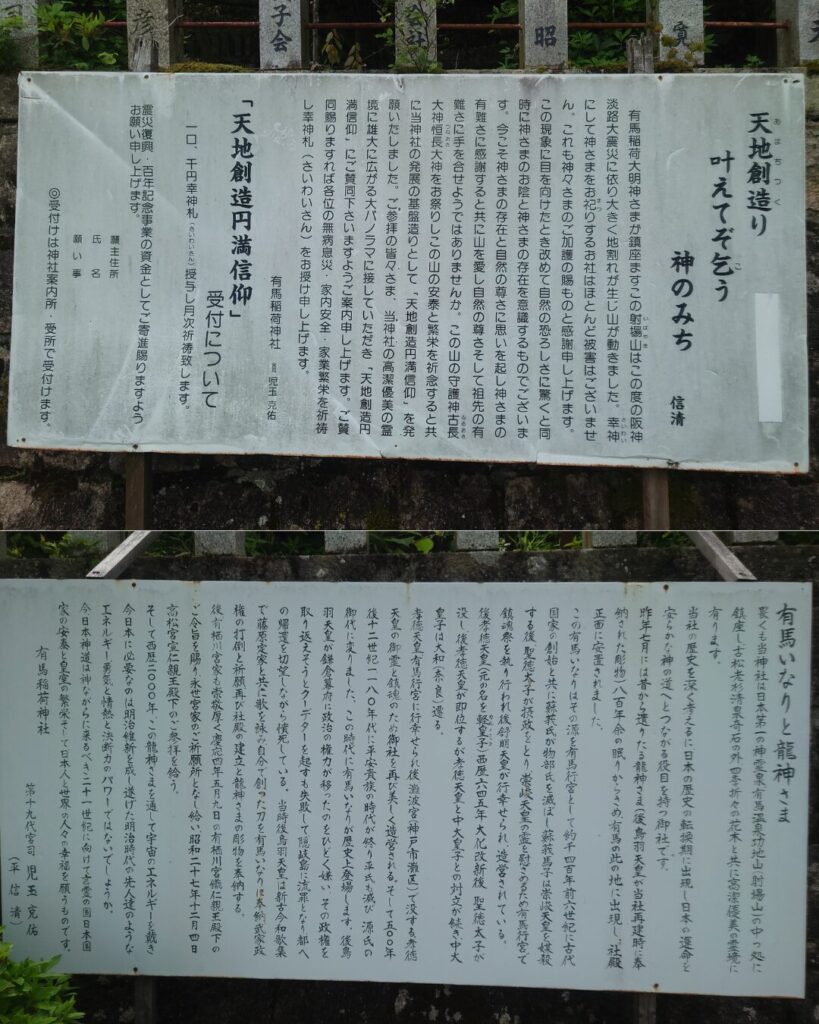 子会
昭
天地創造り
あめつちつく
叶えてぞ乞う
こ
神のみち
信清
有馬稲荷大明神さまが鎮座ますこの射場山はこの度の阪神
いばやま
淡路大震災に依り大きく地割れが生じ山が動きました。幸神
さいわい
にして神さまをお祀りするお社はほとんど被害はございませ
まつ
ん。これも神々さまのご加護の賜ものと感謝申し上げます。
この現象に目を向けたとき改めて自然の恐ろしさに驚くと同
時に神さまのお陰と神さまの存在を意識するものでございま
す。今こそ神さまの存在と自然の尊さに思いを起し神さまの
有難さに感謝すると共に山を愛し自然の尊さそして祖先の有
難さに手を合せようではありませんか。この山の守護神古長
大神恒長大神をお祭りしこの山の安泰と繁栄を祈念すると共
に当神社の発展の基盤造りとして、「天地創造円満信仰」を発
願いたしました。ご参拝の皆々さま、当神社の高潔優美の霊
境に雄大に広がる大パノラマに接していただき「天地創造円
満信仰」にご賛同下さいますようご案内申し上げます。ご賛
同賜りますれば各位の無病息災・家内安全・家業繁栄を祈祷
し幸神札(さいわいさん)をお授け申し上げます。
有馬稲荷神社 宮司 児玉 克佑
「天地創造円満信仰」
受付について
一口、千円幸神札(さいわいさん)授与し月次祈祷致します。
震災復興・百年記念事業の資金としてご寄進賜りますよう
お願い申し上げます。
願主住所
氏 名
願い事
◎受付けは神社案内所・受所で受付けます。
有馬いなりと龍神さま
畏くも当神社は日本第一の神霊泉有馬温泉功地山(射場山)の中つ処に
鎮座し、古松老杉清泉奇石の外四季折々の花木と共に高潔優美の霊境に
有ります。
当社の歴史を深く考えるに日本の歴史の転換期に出現し日本の運命と
安らかな神の道へとつながる役目を持つ御社です。
昨年七月には昔から遷りたる龍神さま(後鳥羽天皇が当社再建時に奉
納された彫物)八百年余の眠りからさめ、有馬の此の地に出現し、社殿
正面に安置されました。
この有馬いなりはその源を有馬行宮として約千四百年前六世紀に古代
国家の創始と共に蘇莪氏が物部氏を滅ぼし蘇莪馬子は崇峻天皇を媒殺
する後、聖徳太子が摂政をとり崇峻天皇の霊を慰めるため有馬行宮で
鎮魂祭を執り行われ後舒明天皇が行幸せられ、造営されている。
後孝徳天皇(元の名を軽皇子)西歴六四五年大化改新後、聖徳太子が
没し、後孝徳天皇が即位するが孝徳天皇と中大皇子との対立が続き中大
皇子は大和(奈良)還る。
孝徳天皇有馬行宮に行幸せられ後難波宮(神戸市灘区)で没する孝徳
天皇の御霊と鎮魂のため御社を再び美しく造営される。そして五〇〇年
後十二世紀一一八〇年代に平安貴族の時代が終り平氏も滅び源氏の
御代に変りました。この時代に有馬いなりが歴史上登場します。後鳥
羽天皇が鎌倉幕府に政治の権力が移ったのをひどく嫌い、その政権を
取り返えそうとクーデターを起すも失敗して隠岐島に流罪となり都へ
の帰還を切望しながら憤死している。当時後鳥羽天皇は新古今和歌集
で藤原定家と共に歌を詠み自分で創った刀を有馬いなりに奉納武家政
権の打倒と祈願再び社殿の建立と龍神さまの彫物を奉納する。
後有栖川宮家も崇敬厚く慶応四年五月九日の有栖川宮熾仁親王殿下の
ご令旨を賜り、永世宮家のご祈願所となし給い、昭和二十七年十二月四日
高松宮宣仁親王殿下のご参拝を給う。
そして西歴二〇〇〇年、この龍神さまを通して宇宙のエネルギーを戴き
今日本に必要なのは明治維新を成し遂げた明治時代の先人達のような
エネルギー、勇気と情熱と決断力のパワーではないでしょうか。
今日本神道は神ながらに来るべき二十一世紀に向けて言霊の国日本国
家の安泰と皇室の繁栄そして日本人と世界の人々の幸福を願うものです。
有馬稲荷神社
第十九代宮司 児玉 克佑
(平 信 清)